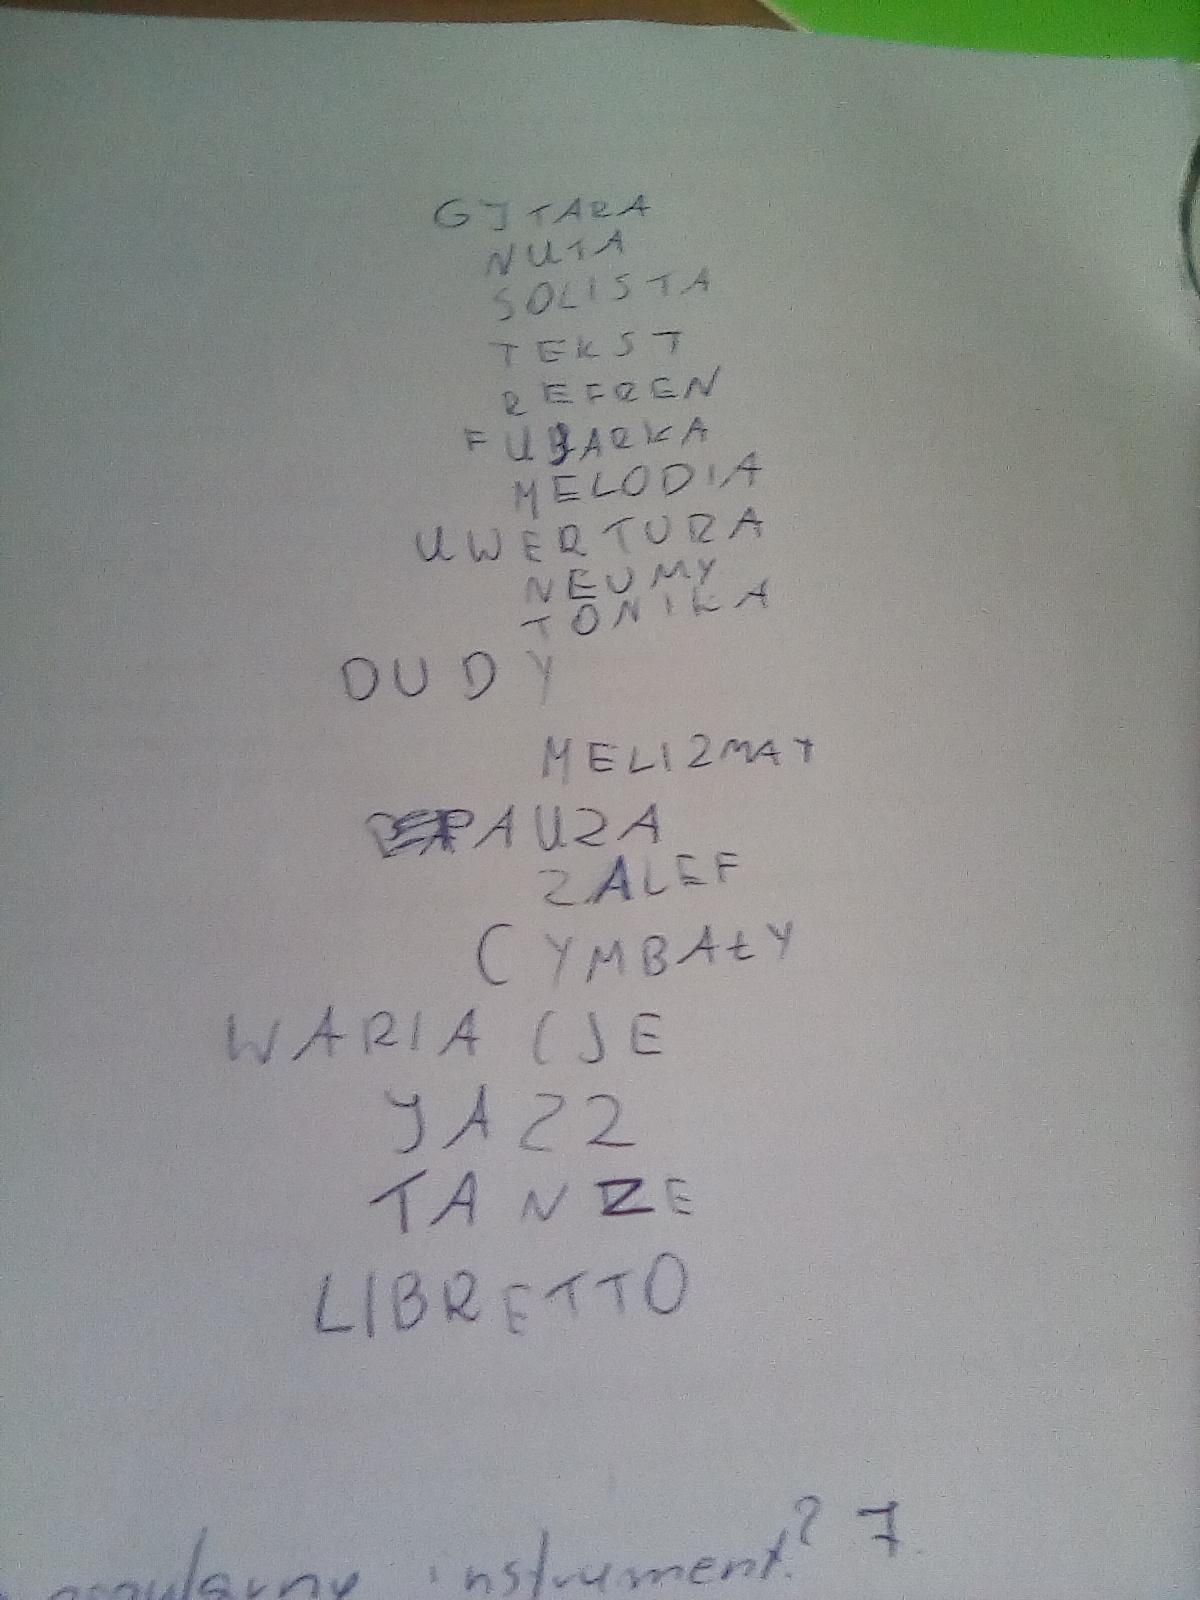 GJTARA
NUTA
SOLISTA
TEKST
REFREN
FUJARKA
MELODIA
UWERTURA
NEUMY
TONIKA
DUDY
MELIZMAT
PAUZA
ZALEF
CYMBAŁY
WARIACJE
JAZZ
TANZE
LIBRETTO
popularny instrument? 7.